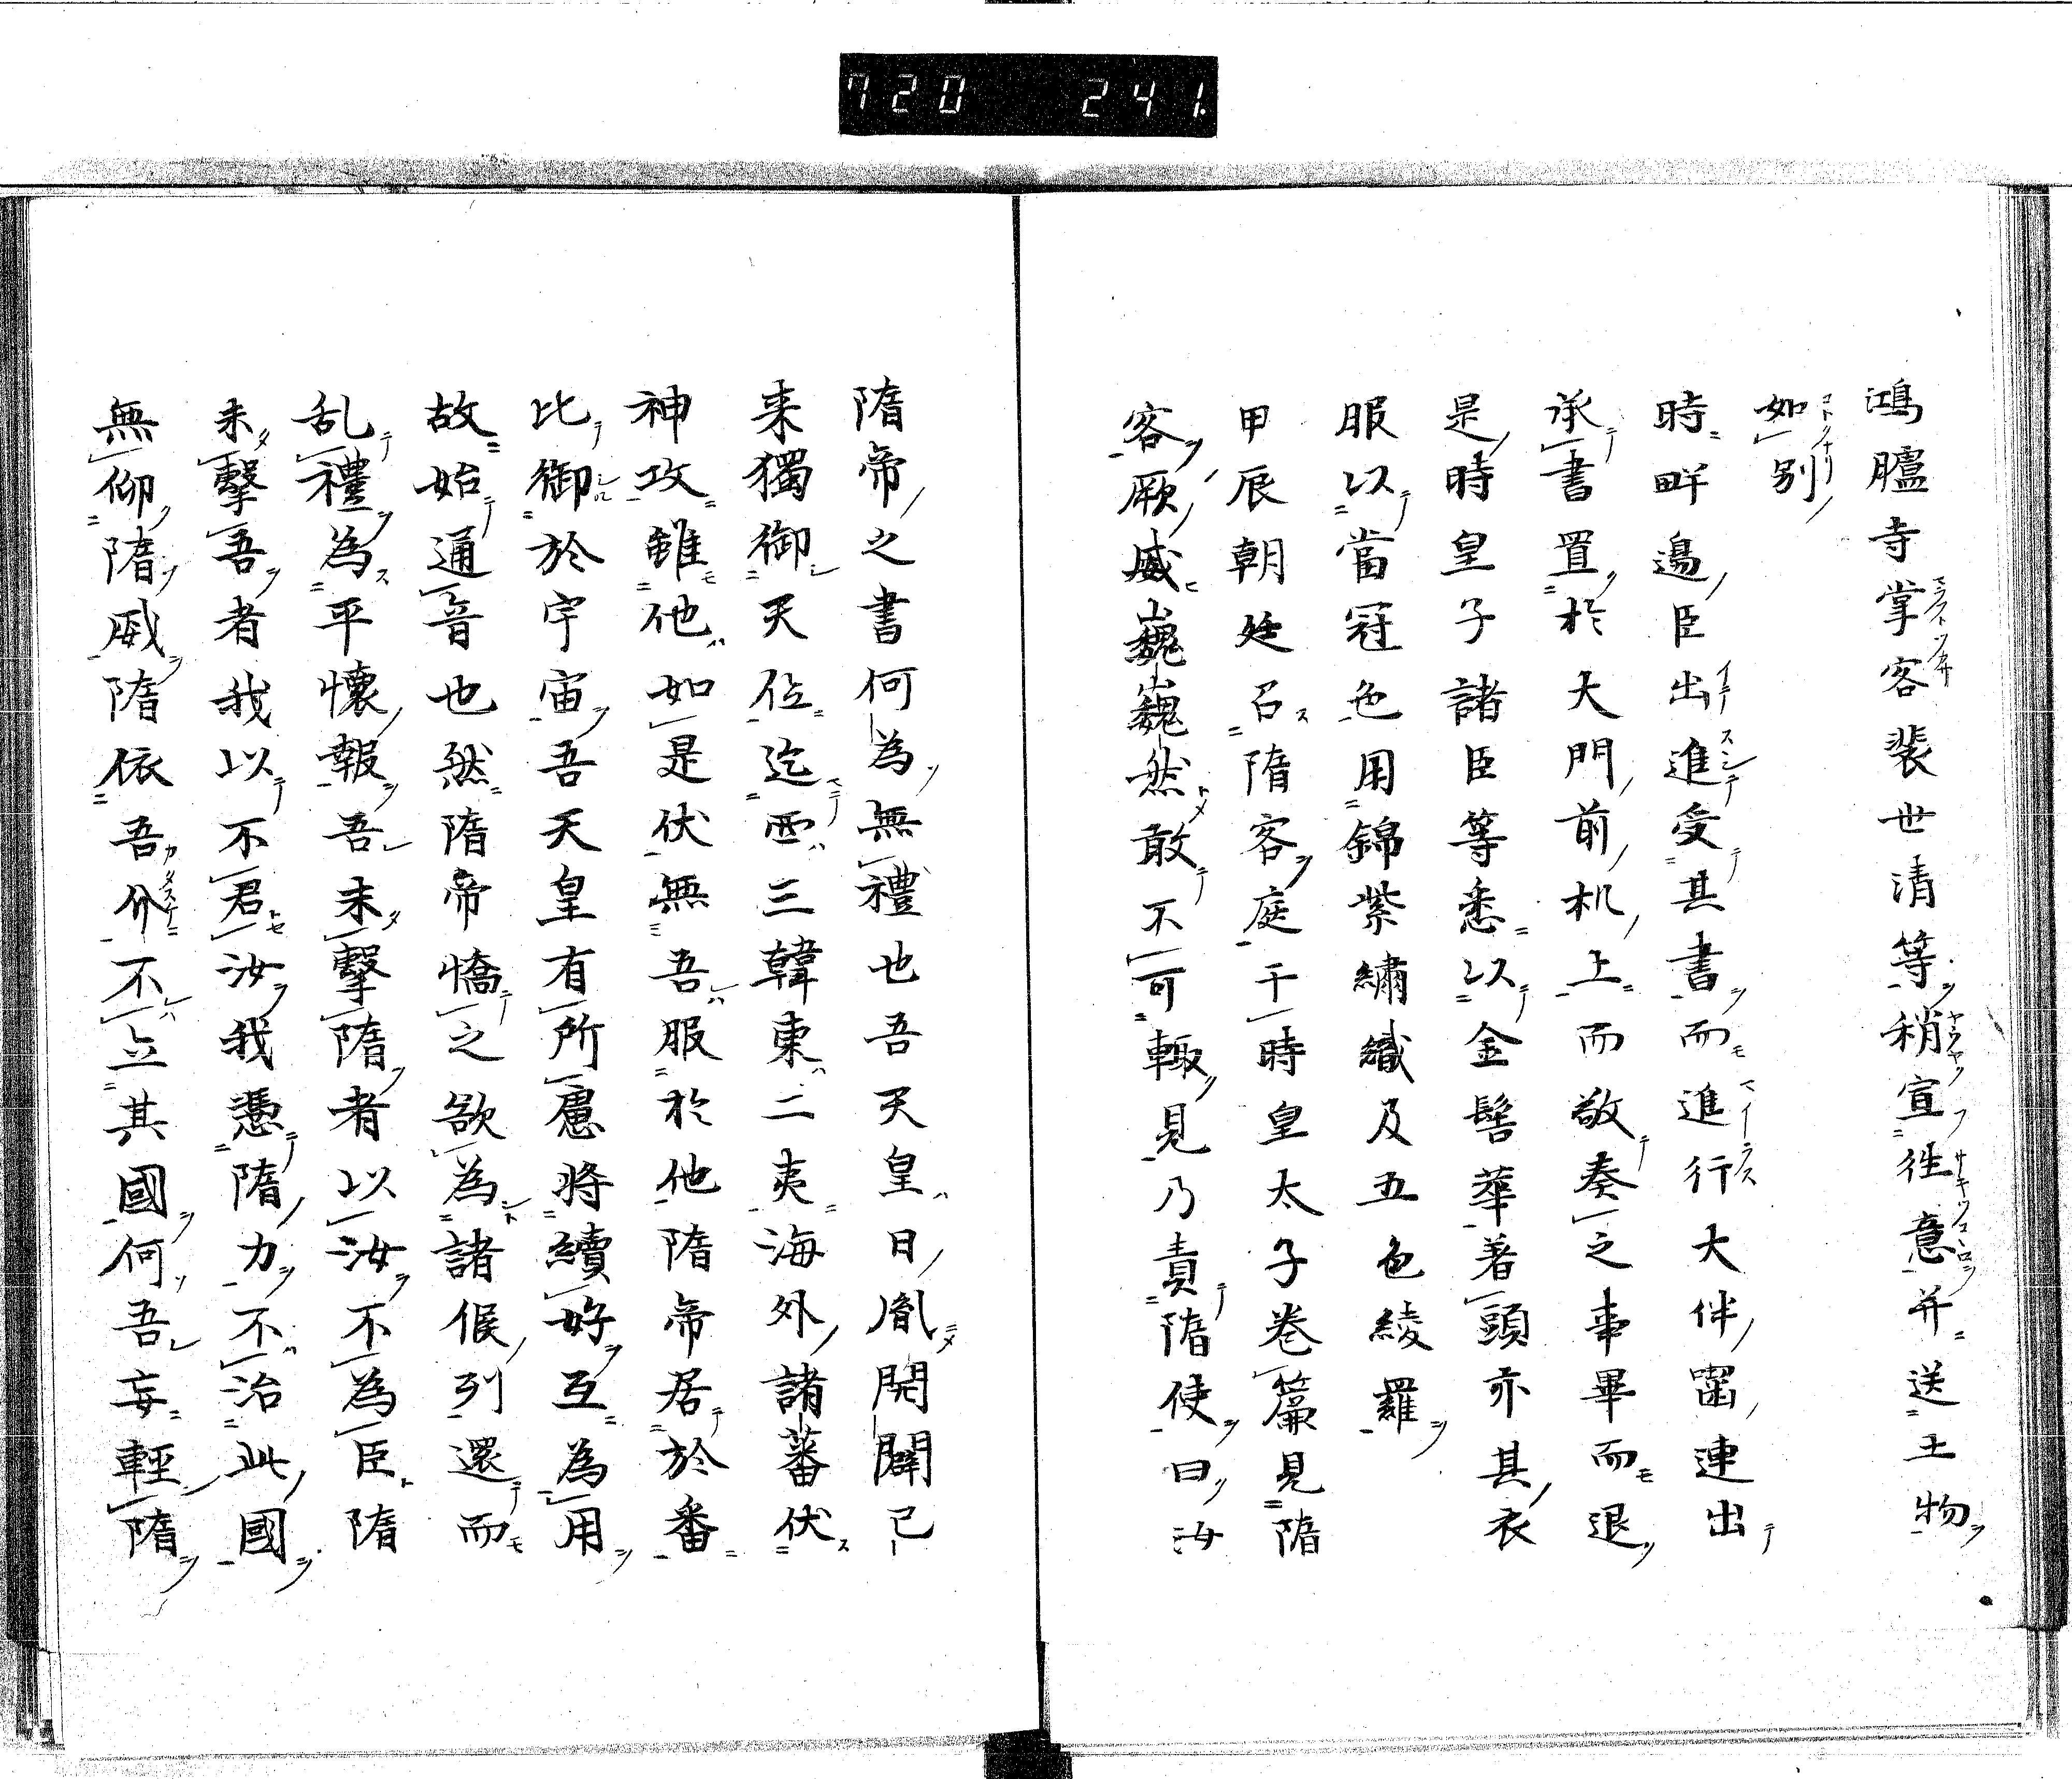 720 241
鴻臚寺掌客裴世清等稍宣徃意并送土物
如別
時畔邉臣出進受其書而進行大伴囓連出
承書置於大門前机上而敬奏之事畢而退
是時皇子諸臣等悉以金髻華著頭亦其衣
服以當冠色用錦紫繡織及五色綾羅
甲辰朝廷召隋客庭于時皇太子卷簾見隋
客厥威巍巍然敢不可輙見乃責隋使曰汝
隋帝之書何為無禮也吾天皇日胤開闢已
来獨御天位迄西三韓東二夷海外諸蕃伏
神攻雖他如是伏無吾服於他隋帝居於番
比御於宇宙吾天皇有所慮將續好互為用
故始通音也然隋帝憍之欲為諸侯列還而
乱禮為平懷報吾未擊隋者以汝不為臣隋
未擊吾者我以不君汝我憑隋力不治此國
無仰隋威隋依吾介不立其國何吾妄輕隋